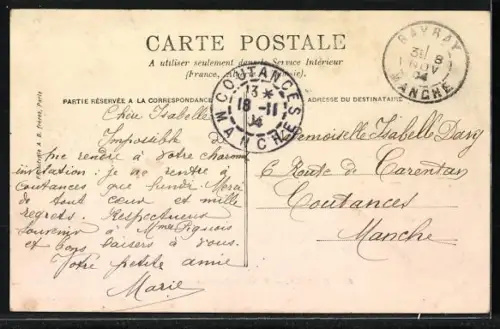 CARTE POSTALE
A utiliser seulement dans le Service Intérieur
(France, Algérie, Tunisie).
PARTIE RÉSERVÉE A LA CORRESPONDANCE
ADRESSE DU DESTINATAIRE
GAVRAY
31 8
NOV
04
MANCHE
COUTANCES
13*
18-11
04
MANCHE
Chère Isabelle
Impossible de
me rendre à votre charmante
invitation : je ne rentre à
Coutances que lundi. Merci
de tout cœur et mille
regrets. Respectueux
souvenir à Mme
et bons baisers à vous.
Votre petite amie
Marie
Mademoiselle Isabelle
6 Route de Carentan
Coutances
Manche